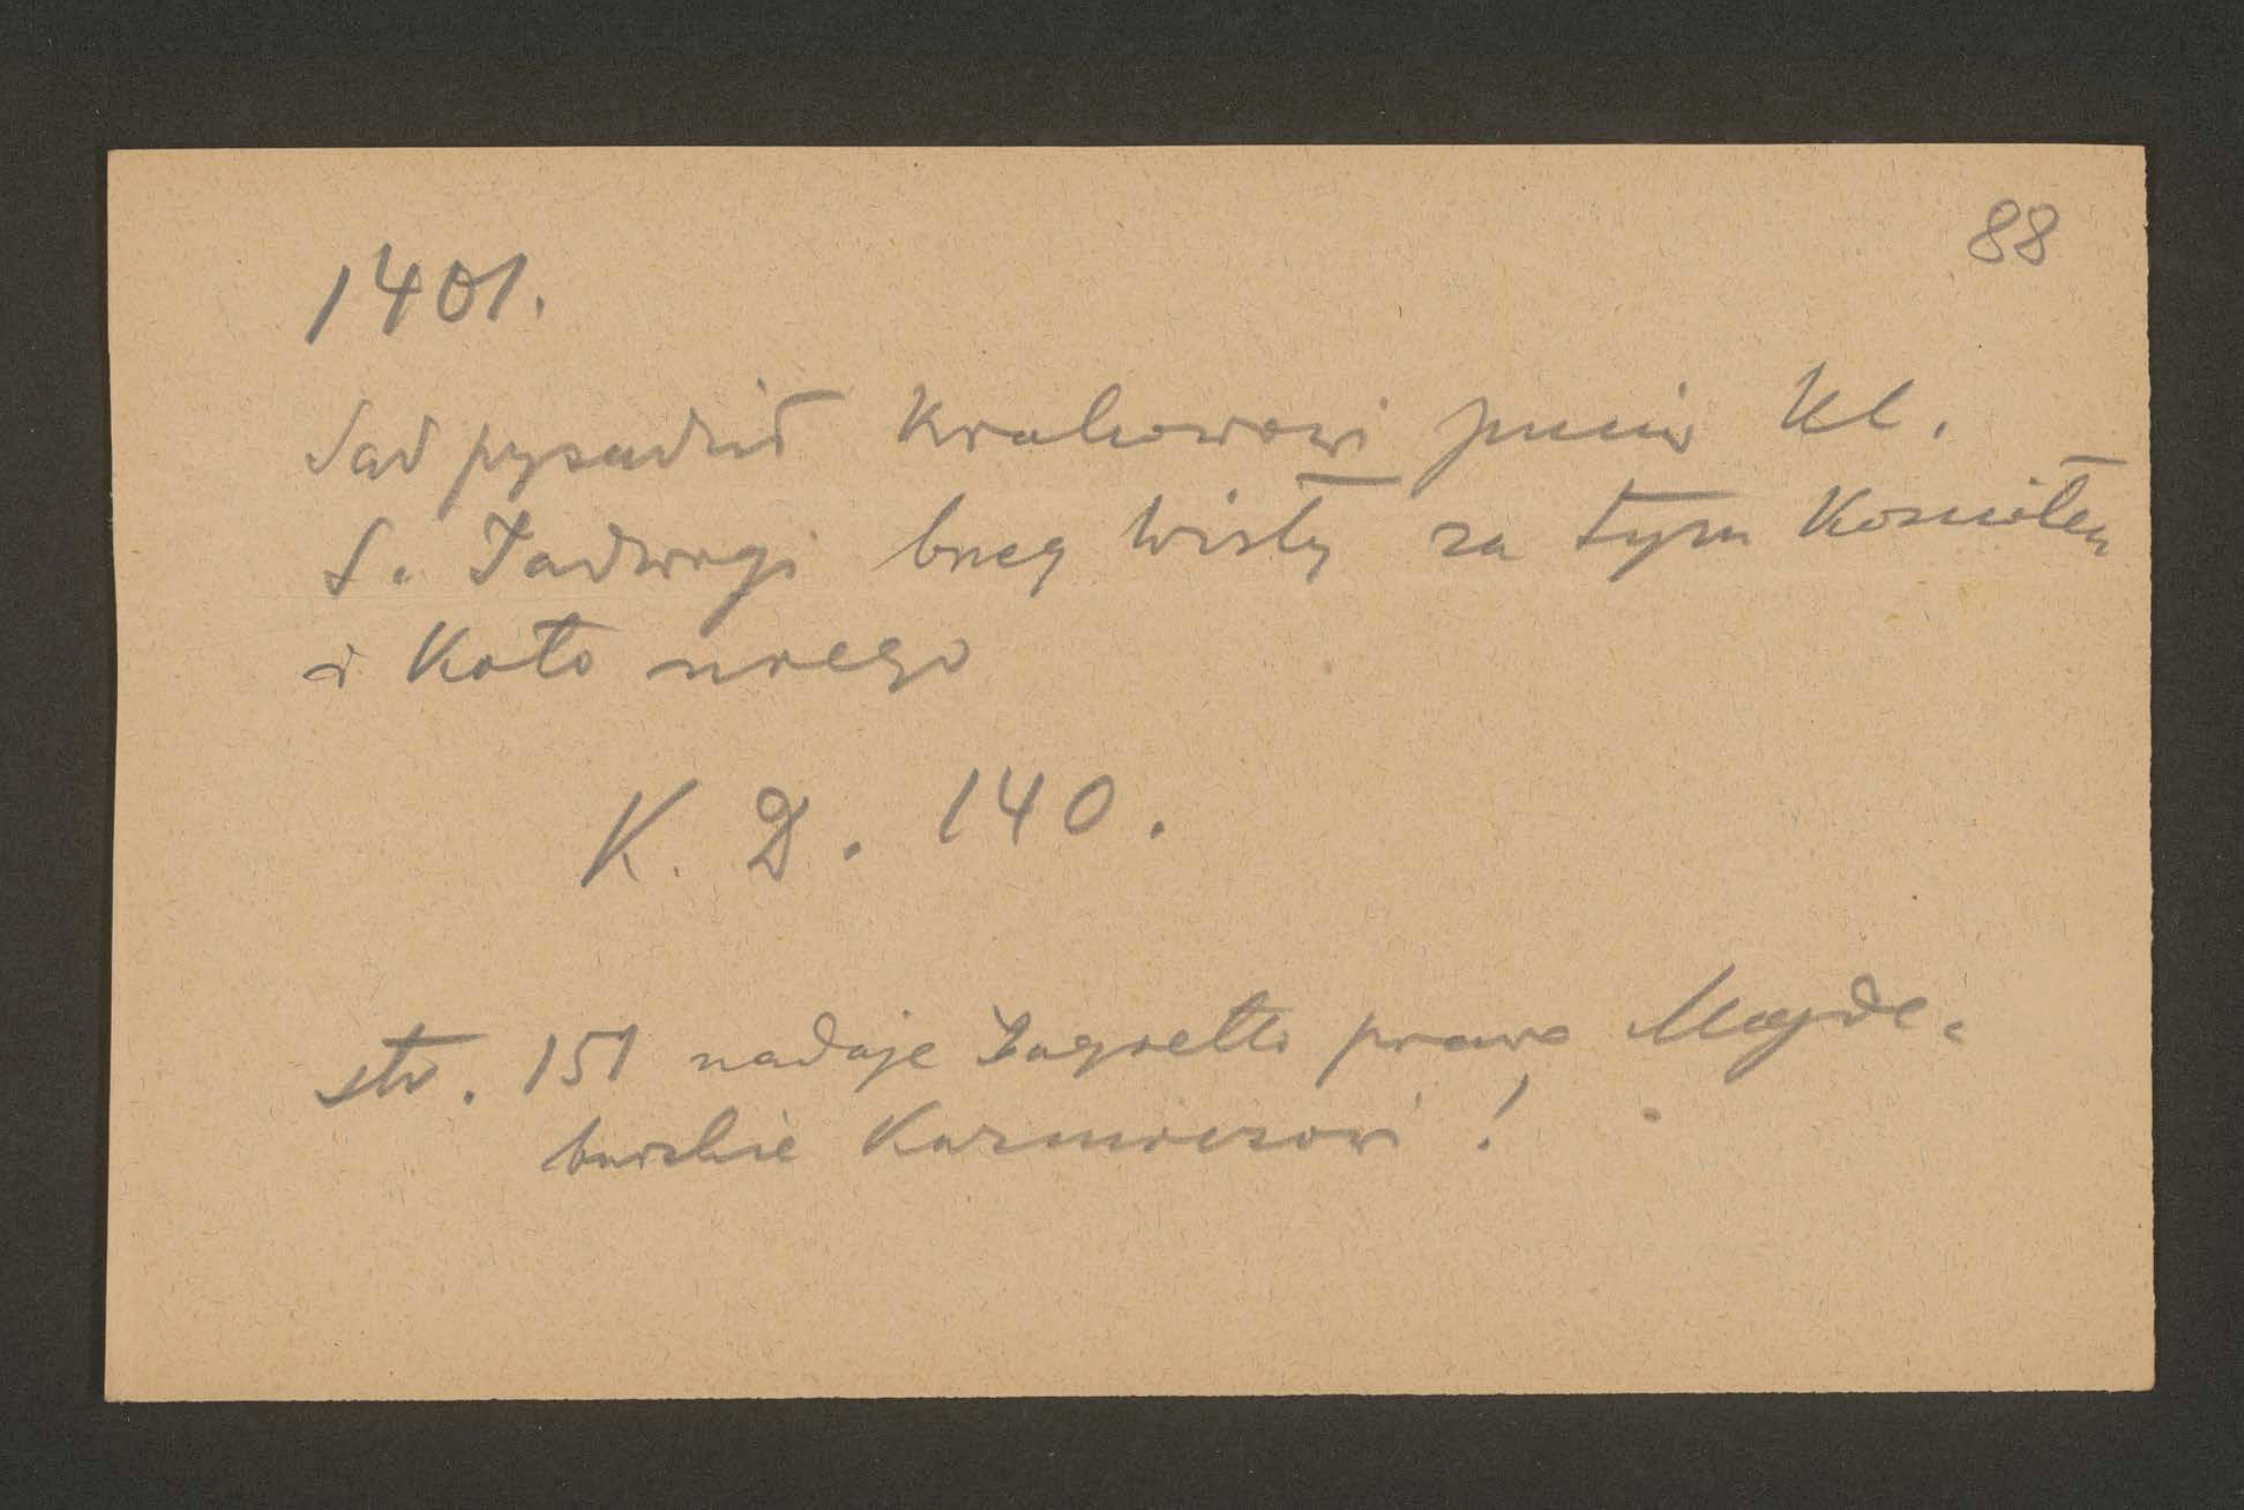 88
1401.
Sąd przysądził Krakowowi przeciw Kl.
S. Jadwigi brzeg Wisły za tym Kościołem
i koło niego
K. D. 140.
str. 151 nadaje Jagiełło prawo Magde-
burskie Kazimierzowi !